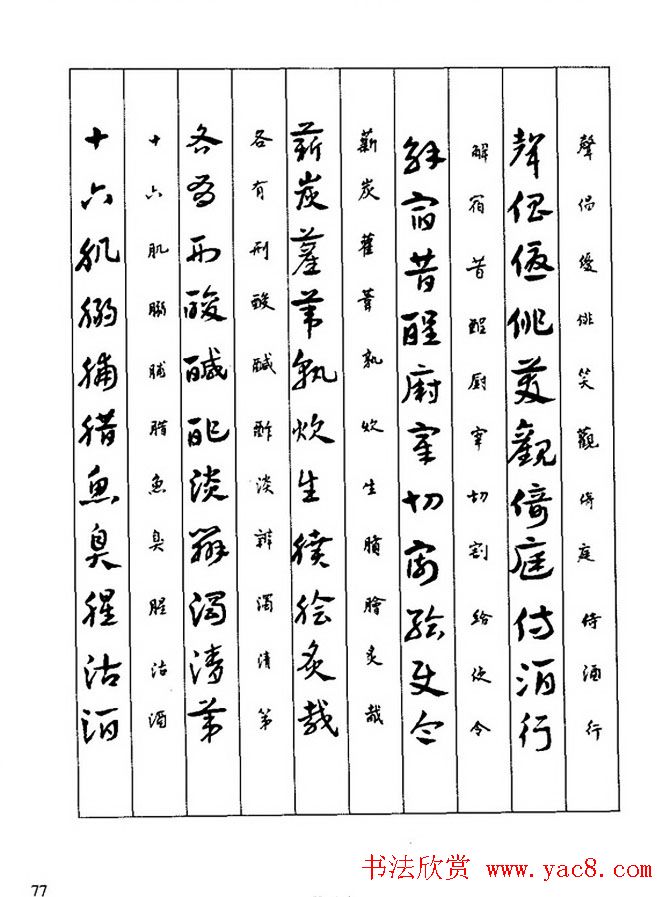 聲倡優俳笑觀倚庭侍酒行
聲倡優俳笑觀倚庭侍酒行
解宿昔醒厨宰切割給使令
解宿昔醒厨宰切割給使令
薪炭雚葦孰炊生膹膾炙胾
薪炭雚葦孰炊生膹膾炙胾
各有刑酸鹹酢淡辨濁清第
各有刑酸鹹酢淡辨濁清第
十六肌脯腊魚臭腥沽酒
十六肌脯腊魚臭腥沽酒
77
书法欣赏 www.yac8.com